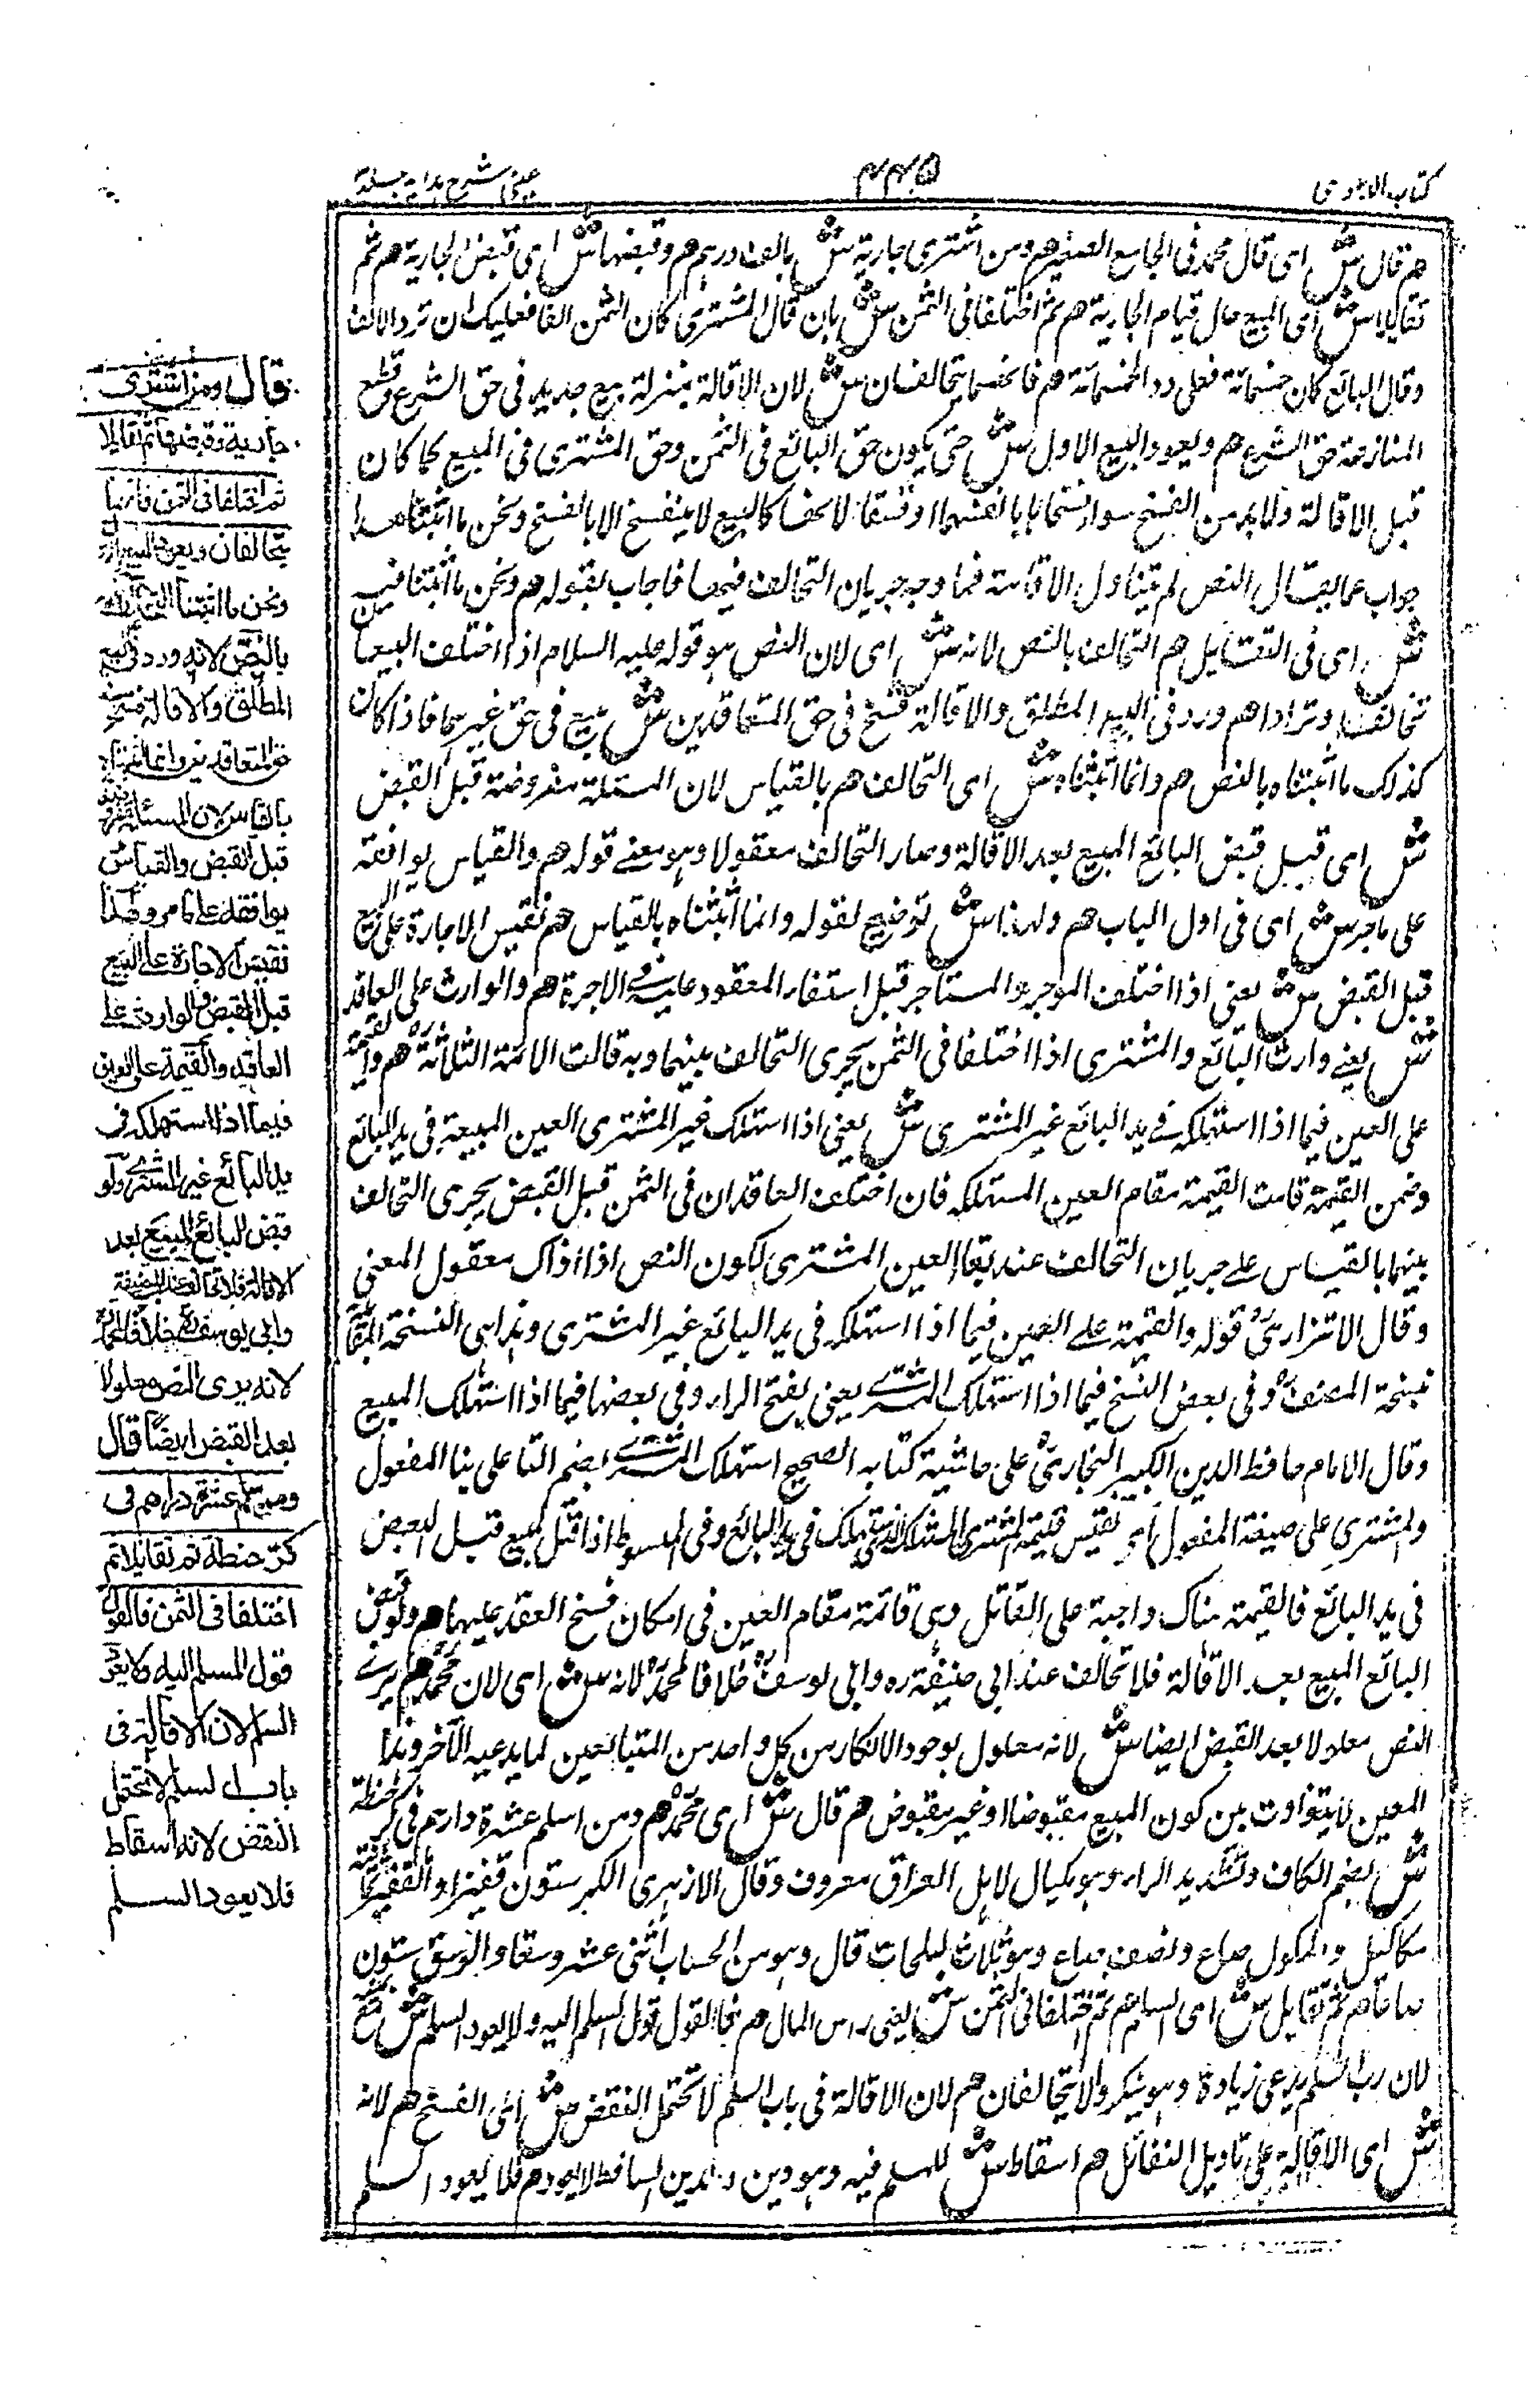 كتاب الدعوى
٤٤٥
عينى شرح هداية جلد٣
هم قال ش اى قال محمد فى الجامع الصغير هم ومن اشترى جارية ش بالف درهم هم وقبضها ش اى قبض الجارية هم ثم
تقايلا ش اى المبيع حال قيام الجارية هم ثم اختلفا فى الثمن ش بان قال المشترى كان الثمن الفا فعليك ان ترد الالف
وقال البائع كان خمسمائة فعلى رد الخمسمائة هم فانهما يتحالفان ش لان الاقالة بمنزلة بيع جديد فى حق الشرع وقطع
المنازعة حق الشرع هم ويعود البيع الاول ش حتى يكون حق البائع فى الثمن وحق المشترى فى المبيع كما كان
قبل الاقالة ولا بد من الفسخ سواء فسخاها بانفسهما او لا كالبيع لا ينفسخ الا بالفسخ ونحن ما اثبتنا هذا
جواب عما يقال النص لم يتناول الاقالة فما وجه جريان التحالف فيها فاجاب بقوله هم ونحن ما اثبتنا فيه
ش اى فى التقايل هم التحالف بالنص لانه ش اى لان النص هو قوله عليه السلام اذا اختلف البيعان
تحالفا وترادا هم ورد فى البيع المطلق والاقالة فسخ فى حق المتعاقدين ش بيع فى حق غيرهما فاذا كان
كذلك ما اثبتناه بالنص هم وانما اثبتناه ش اى التحالف هم بالقياس لان المسئلة مفروضة قبل القبض
ش اى قبل قبض البائع المبيع بعد الاقالة وصار التحالف معقولا وهو معنى قوله هم والقياس يوافقه
على ما مر ش اى فى اول الباب هم ولهذا ش توضيح لقوله وانما اثبتناه بالقياس هم نقيس الاجارة على البيع
قبل القبض ش يعنى اذا اختلف الموجر والمستاجر قبل استيفاء المعقود عليه فى الاجرة هم والوارث على العاقد
ش يعنى وارث البائع والمشترى اذا اختلفا فى الثمن يجرى التحالف بينهما وبه قالت الائمة الثلاثة هم والقيمة
على العين فيما اذا استهلكه فى يد البائع غير المشترى ش يعنى اذا استهلك غير المشترى العين المبيعة فى يد البائع
وضمن القيمة قامت القيمة مقام العين المستهلكة فان اختلف العاقدان فى الثمن قبل القبض يجرى التحالف
بينهما بالقياس على جريان التحالف عند بقاء العين المشترى لكون النص اذ ذاك معقول المعنى
وقال الاتزارى قوله والقيمة على العين فيما اذا استهلكه فى يد البائع غير المشترى وهذا هى النسخة المقابلة
بنسخة المصنف وفى بعض النسخ فيما اذا استهلك المشترى يعنى بفتح الراء وفى بعضها فيما اذا استهلك المبيع
وقال الامام حافظ الدين الكبير البخارى على حاشية كتابه الصحيح استهلك المشترى بضم التا على بنا المفعول
والمشترى على صيغة المفعول اى نقيس قيمة المشترى المستهلك فى يد البائع وفى المبسوط اذا قتل المبيع قبل القبض
فى يد البائع فالقيمة هناك واجبة على القاتل وهى قائمة مقام العين فى امكان فسخ العقد عليها هم ولو قبض
البائع المبيع بعد الاقالة فلا تحالف عند ابى حنيفة ره وابى يوسف خلافا لمحمد لانه ش اى لان محمد هم يرى
النص معلولا بعد القبض ايضا ش لانه معلول بوجود الانكار من كل واحد من المتبايعين لما يدعيه الآخر وهذا
المعنى لا يتفاوت بين كون المبيع مقبوضا او غير مقبوض هم قال ش اى محمد هم ومن اسلم عشرة دراهم فى كر حنطة
ش بضم الكاف وتشديد الراء وهو مكيال لاهل العراق معروف وقال الازهرى الكر ستون قفيزا والقفيز ثمانية
مكاكيك والمكوك صاع ونصف صاع وهو ثلاث كيلجات قال وهو من الحساب اثنى عشر وسقا والوسق ستون
صاعا هم ثم تقايلا ش اى السلم هم ثم اختلفا فى الثمن ش يعنى راس المال هم فالقول قول المسلم اليه ولا يعود السلم ش
لان رب السلم يدعى زيادة وهو ينكر ولا يتحالفان هم لان الاقالة فى باب السلم لا تحتمل النقض ش اى الفسخ هم لانه
ش اى الاقالة على تاويل التقايل هم اسقاط ش للمسلم فيه وهو دين والدين الساقط لا يعود هم فلا يعود السلم
قال ومن اشترى
جارية وقبضها ثم تقايلا
ثم اختلفا فى الثمن فانهما
يتحالفان ويعود البيع الاول
ونحن ما اثبتنا التحالف
بالنص لانه ورد فى البيع
المطلق والاقالة فسخ فى
حق المتعاقدين وانما اثبتناه
بالقياس لان المسئلة مفروضة
قبل القبض والقياس
يوافقه على ما مر ولهذا
نقيس الاجارة على البيع
قبل القبض والوارث على
العاقد والقيمة على العين
فيما اذا استهلكه فى
يد البائع غير المشترى ولو
قبض البائع المبيع بعد
الاقالة فلا تحالف عند ابى حنيفة
وابى يوسف خلافا لمحمد
لانه يرى النص معلولا
بعد القبض ايضا قال
ومن اسلم عشرة دراهم فى
كر حنطة ثم تقايلا ثم
اختلفا فى الثمن فالقول
قول المسلم اليه ولا يعود
السلم لان الاقالة فى
باب السلم لا تحتمل
النقض لانه اسقاط
فلا يعود السلم